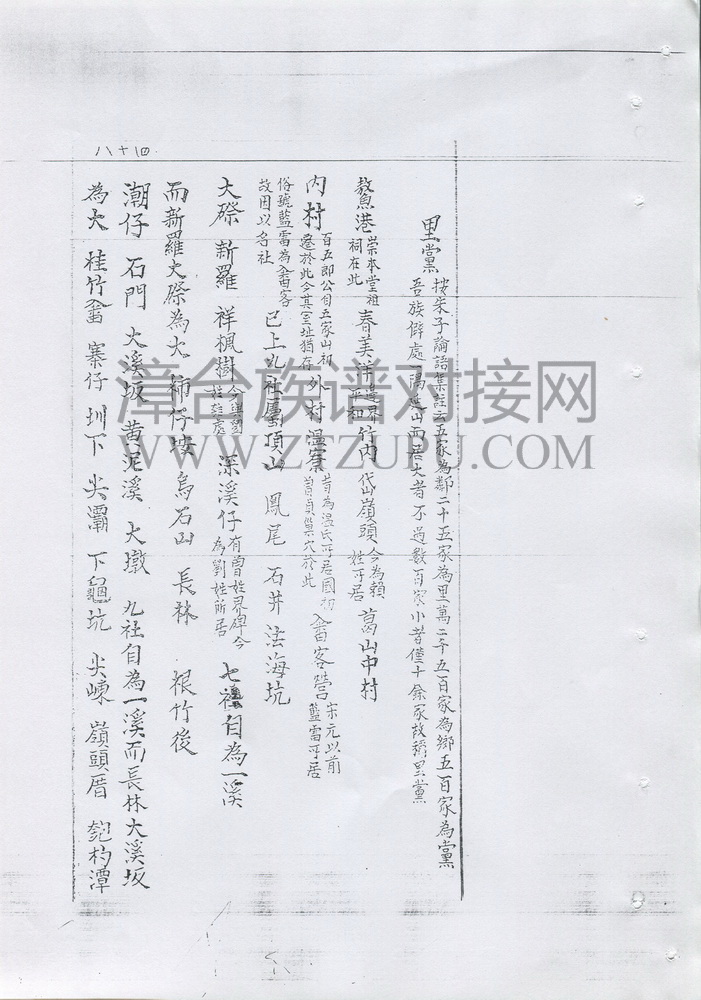 里黨 按朱子論語集註云五家為鄰二十五家為里萬二千五百家為鄉五百家為黨
吾族僻處一隅邊山而居大者不過數百家小者僅十餘家故稱里黨
崇本堂祖
祠在此 春美洋 邊界
平和 竹內 岱嶺頭 今為賴
姓所居 葛山中村
內村 百五郎公自五家山初
遷於此今其室址猶存 外村 溫寮 昔為溫氏所居國初
曾貞巢穴於此 畬客營 宋元以前
藍雷所居
俗號藍雷為畬客
故因以名社 已上九社屬頂山 鳳尾 石井 法海坑
大磜 新羅 祥楓樹 深溪仔 有曾姓界碑今
為劉姓所居 七社自為一溪
而新羅大磜為大 柿仔埯 烏石山 長林 根竹後
潮仔 石門 大溪坂 黄泥溪 大墩 九社自為一溪而長林大溪坂
為大 桂竹畬 寨仔 圳下 尖灞 下龜坑 尖崠 嶺頭厝 匏杓潭
八十四
漳台族谱对接网
WWW.ZTZUPU.COM